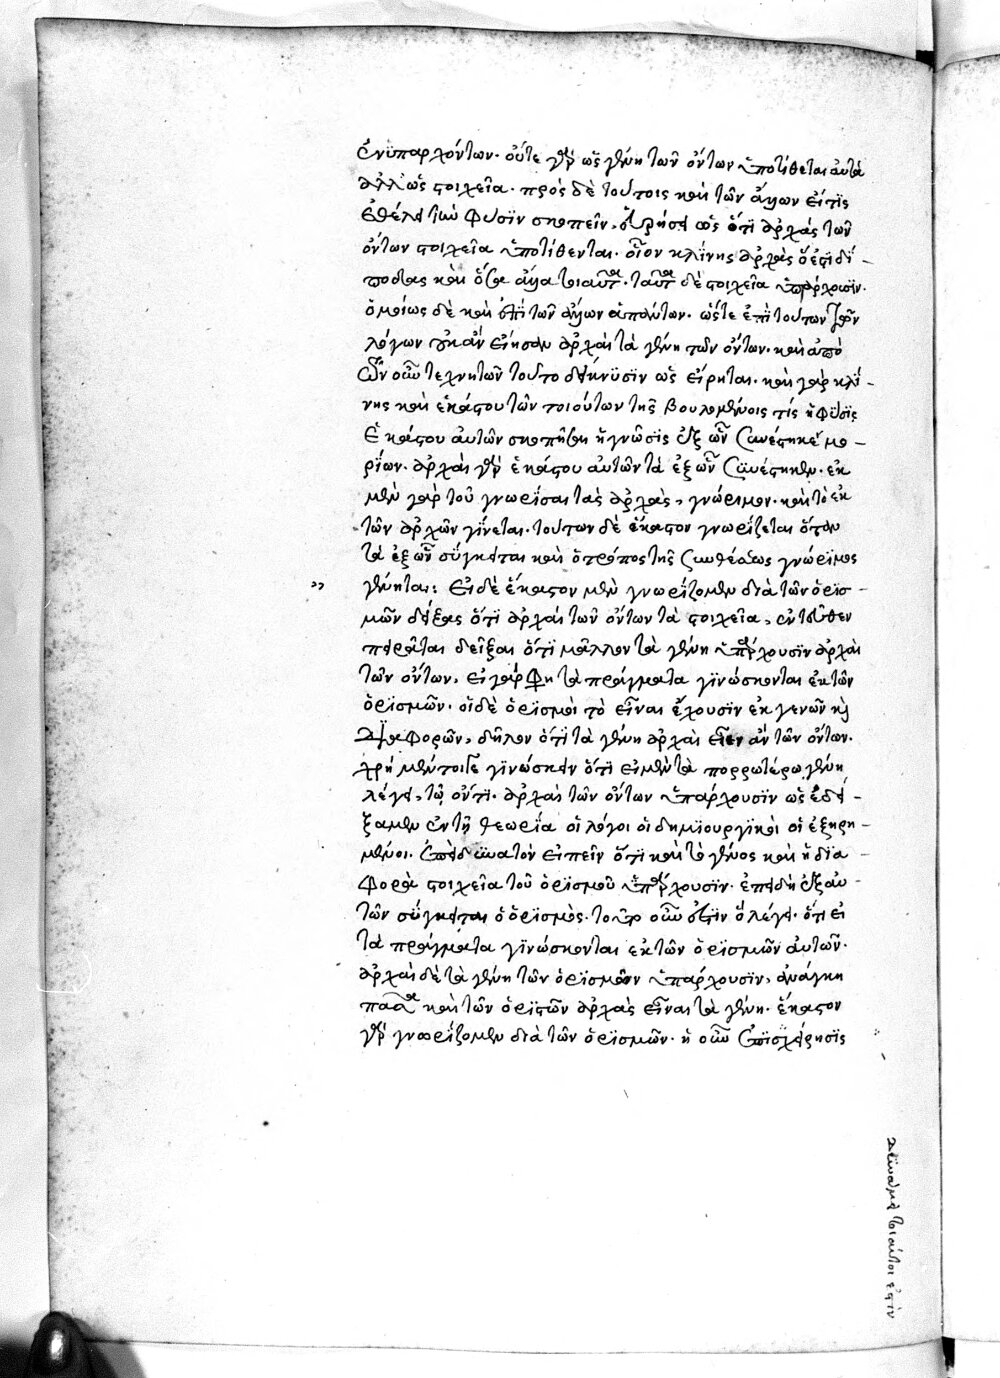 ἐνϋπαρχόντων· οὔτε γὰρ ὡς γένη τῶν ὄντων ὑποτίθεται αὐτὰ
ἀλλ' ὡς στοιχεῖα· πρὸς δὲ τούτοις καὶ τῶν ἄλλων εἴ τϊς
ἐθέλει τὴν φύσϊν σκοπεῖν, εὑρήσει ὡς ὅτϊ ἀρχὰς τῶν
ὄντων στοιχεῖα ὑποτίθενται· οἷον κλίνης ἀρχὰς
πόδας καὶ ὅσα ἄλλα τοιαῦτα· ταῦτα δὲ στοιχεῖα ὑπάρχουσϊν·
ὁμοίως δὲ καὶ ἐπῒ τῶν ἄλλων ἁπάντων· ὥστε ἐπῒ τούτων τῶν
λόγων οὐκ ἂν εἴησαν ἀρχαὶ τὰ γένη τῶν ὄντων· καὶ ἀπὸ
τῶν οὖν τεχνητῶν τοῦτο δείκνϋσϊν ὡς εἴρηται· καὶ γὰρ κλΐ-
νης καὶ ἑκάστου τῶν τοιούτων τῆς βουλομένοις τίς ἡ φύσϊς
ἑκάστου αὐτῶν σκοπῆσαι ἡ γνῶσϊς ἐξ ὧν συνέστηκε μο-
ρΐων· ἀρχαὶ γὰρ ἑκάστου αὐτῶν τὰ ἐξ ὧν συνέστηκεν· ἐκ
μὲν γὰρ τοῦ γνωρΐσαι τὰς ἀρχὰς, γνώριμον· καὶ τὸ ἐκ
τῶν ἀρχῶν γΐνεται· τούτων δὲ ἕκαστον γνωρΐζεται ὅταν
τὰ ἐξ ὧν σΰγκειται καὶ ὁ τρόπος τῆς συνθέσεως γνώρϊμος
γένηται: εἰ δὲ ἕκαστον μὲν γνωρΐζομεν διὰ τῶν ὁρϊσ-
μῶν δείξας ὅτϊ ἀρχαὶ τῶν ὄντων τὰ στοιχεῖα, ἐντεῦθεν
πειρᾶται δεῖξαι ὅτϊ μᾶλλον τὰ γένη ὑπάρχουσϊν ἀρχαὶ
τῶν ὄντων, εἰ γάρ φησι τὰ πράγματα γϊνώσκονται ἐκ τῶν
ὁρϊσμῶν· οἱ δὲ ὁρϊσμοὶ τὸ εἶναι ἔχουσϊν ἐκ γενῶν καὶ
διαφορῶν, δῆλον ὅτϊ τὰ γένη ἀρχαὶ εἶεν ἂν τῶν ὄντων·
χρὴ μέντοιγε γϊνώσκειν ὅτϊ εἰ μὲν τὰ πορρωτέρω γένη
λέγει, τῷ ὄντϊ· ἀρχαὶ τῶν ὄντων ὑπάρχουσϊν ὡς ἐδεί-
ξαμεν ἐν τῇ θεωρΐα οἱ λόγοι οἱ δημϊουργϊκοὶ οἱ ἐξηρη-
μένοι· ἐπεὶ δυνατὸν εἰπεῖν ὅτϊ καὶ τὸ γένος καὶ ἡ δϊα-
φορὰ στοιχεῖα τοῦ ὁρϊσμοῦ ὑπάρχουσϊν· ἐπειδὴ ἐξ αὐ-
τῶν σΰγκειται ὁ ὁρϊσμὸς· τοῦτο οὖν ἐστϊν ὃ λέγει· ὅτϊ εἰ
τὰ πράγματα γϊνώσκονται ἐκ τῶν ὁρϊσμῶν αὐτῶν·
ἀρχαὶ δὲ τὰ γένη τῶν ὁρϊσμῶν ὑπάρχουσϊν, ἀνάγκη
πᾶσα καὶ τῶν ὁρϊστῶν ἀρχὰς εἶναι τὰ γένη· ἕκαστον
γὰρ γνωρΐζομεν διὰ τῶν ὁρϊσμῶν· ἡ οὖν ἐπϊχείρησϊς